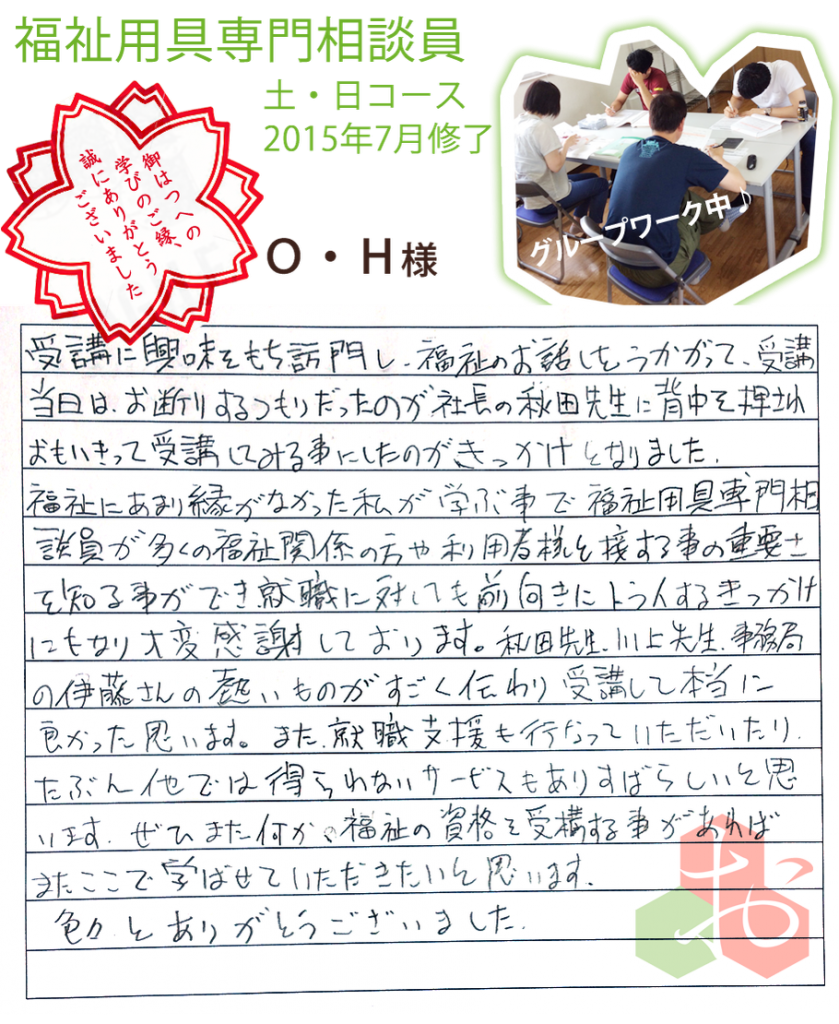 福祉用具専門相談員
土・日コース
2015年7月修了
御はつへの
学びのご縁、
誠にありがとう
ございました
O・H様
グループワーク中♪
受講に興味をもち訪門し、福祉のお話しをうかがって、受講
当日は、お断りするつもりだったのが社長の秋田先生に背中を押され
おもいきって受講してみる事にしたのがきっかけとなりました.
福祉にあまり縁がなかった私が学ぶ事で福祉用具専門相
談員が多くの福祉関係の方や利用者様と接する事の重要さ
を知る事ができ就職に対しても前向きにトライするきっかけ
にもなり大変感謝しております。秋田先生、川上先生、事務局
の伊藤さんの熱いものがすごく伝わり受講して本当に
良かった思います。また、就職支援も行なっていただいたり、
たぶん他では得られないサービスもありすばらしいと思
います. ぜひまた何か、福祉の資格を受構する事があれば
またここで学ばせていただきたいと思います.
色々とありがとうございました.
お